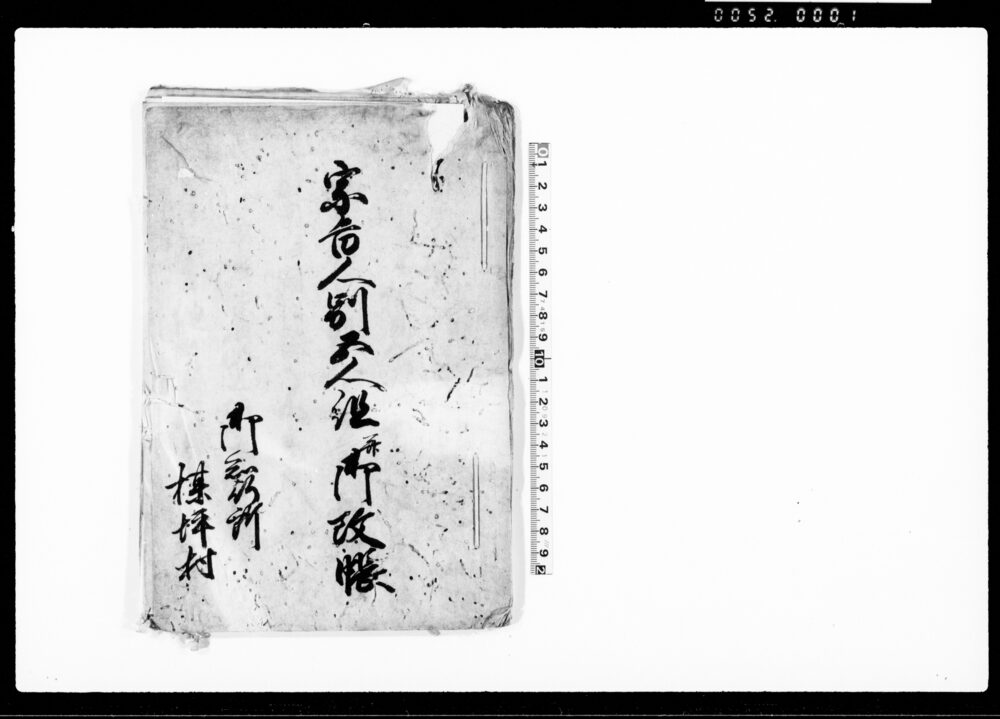 0052. 0001
宗旨人別五人組并御改帳
御知行所
棟坪村
0 1 2 3 4 5 6 7 8 9 10 1 2 3 4 5 6 7 8 9 2